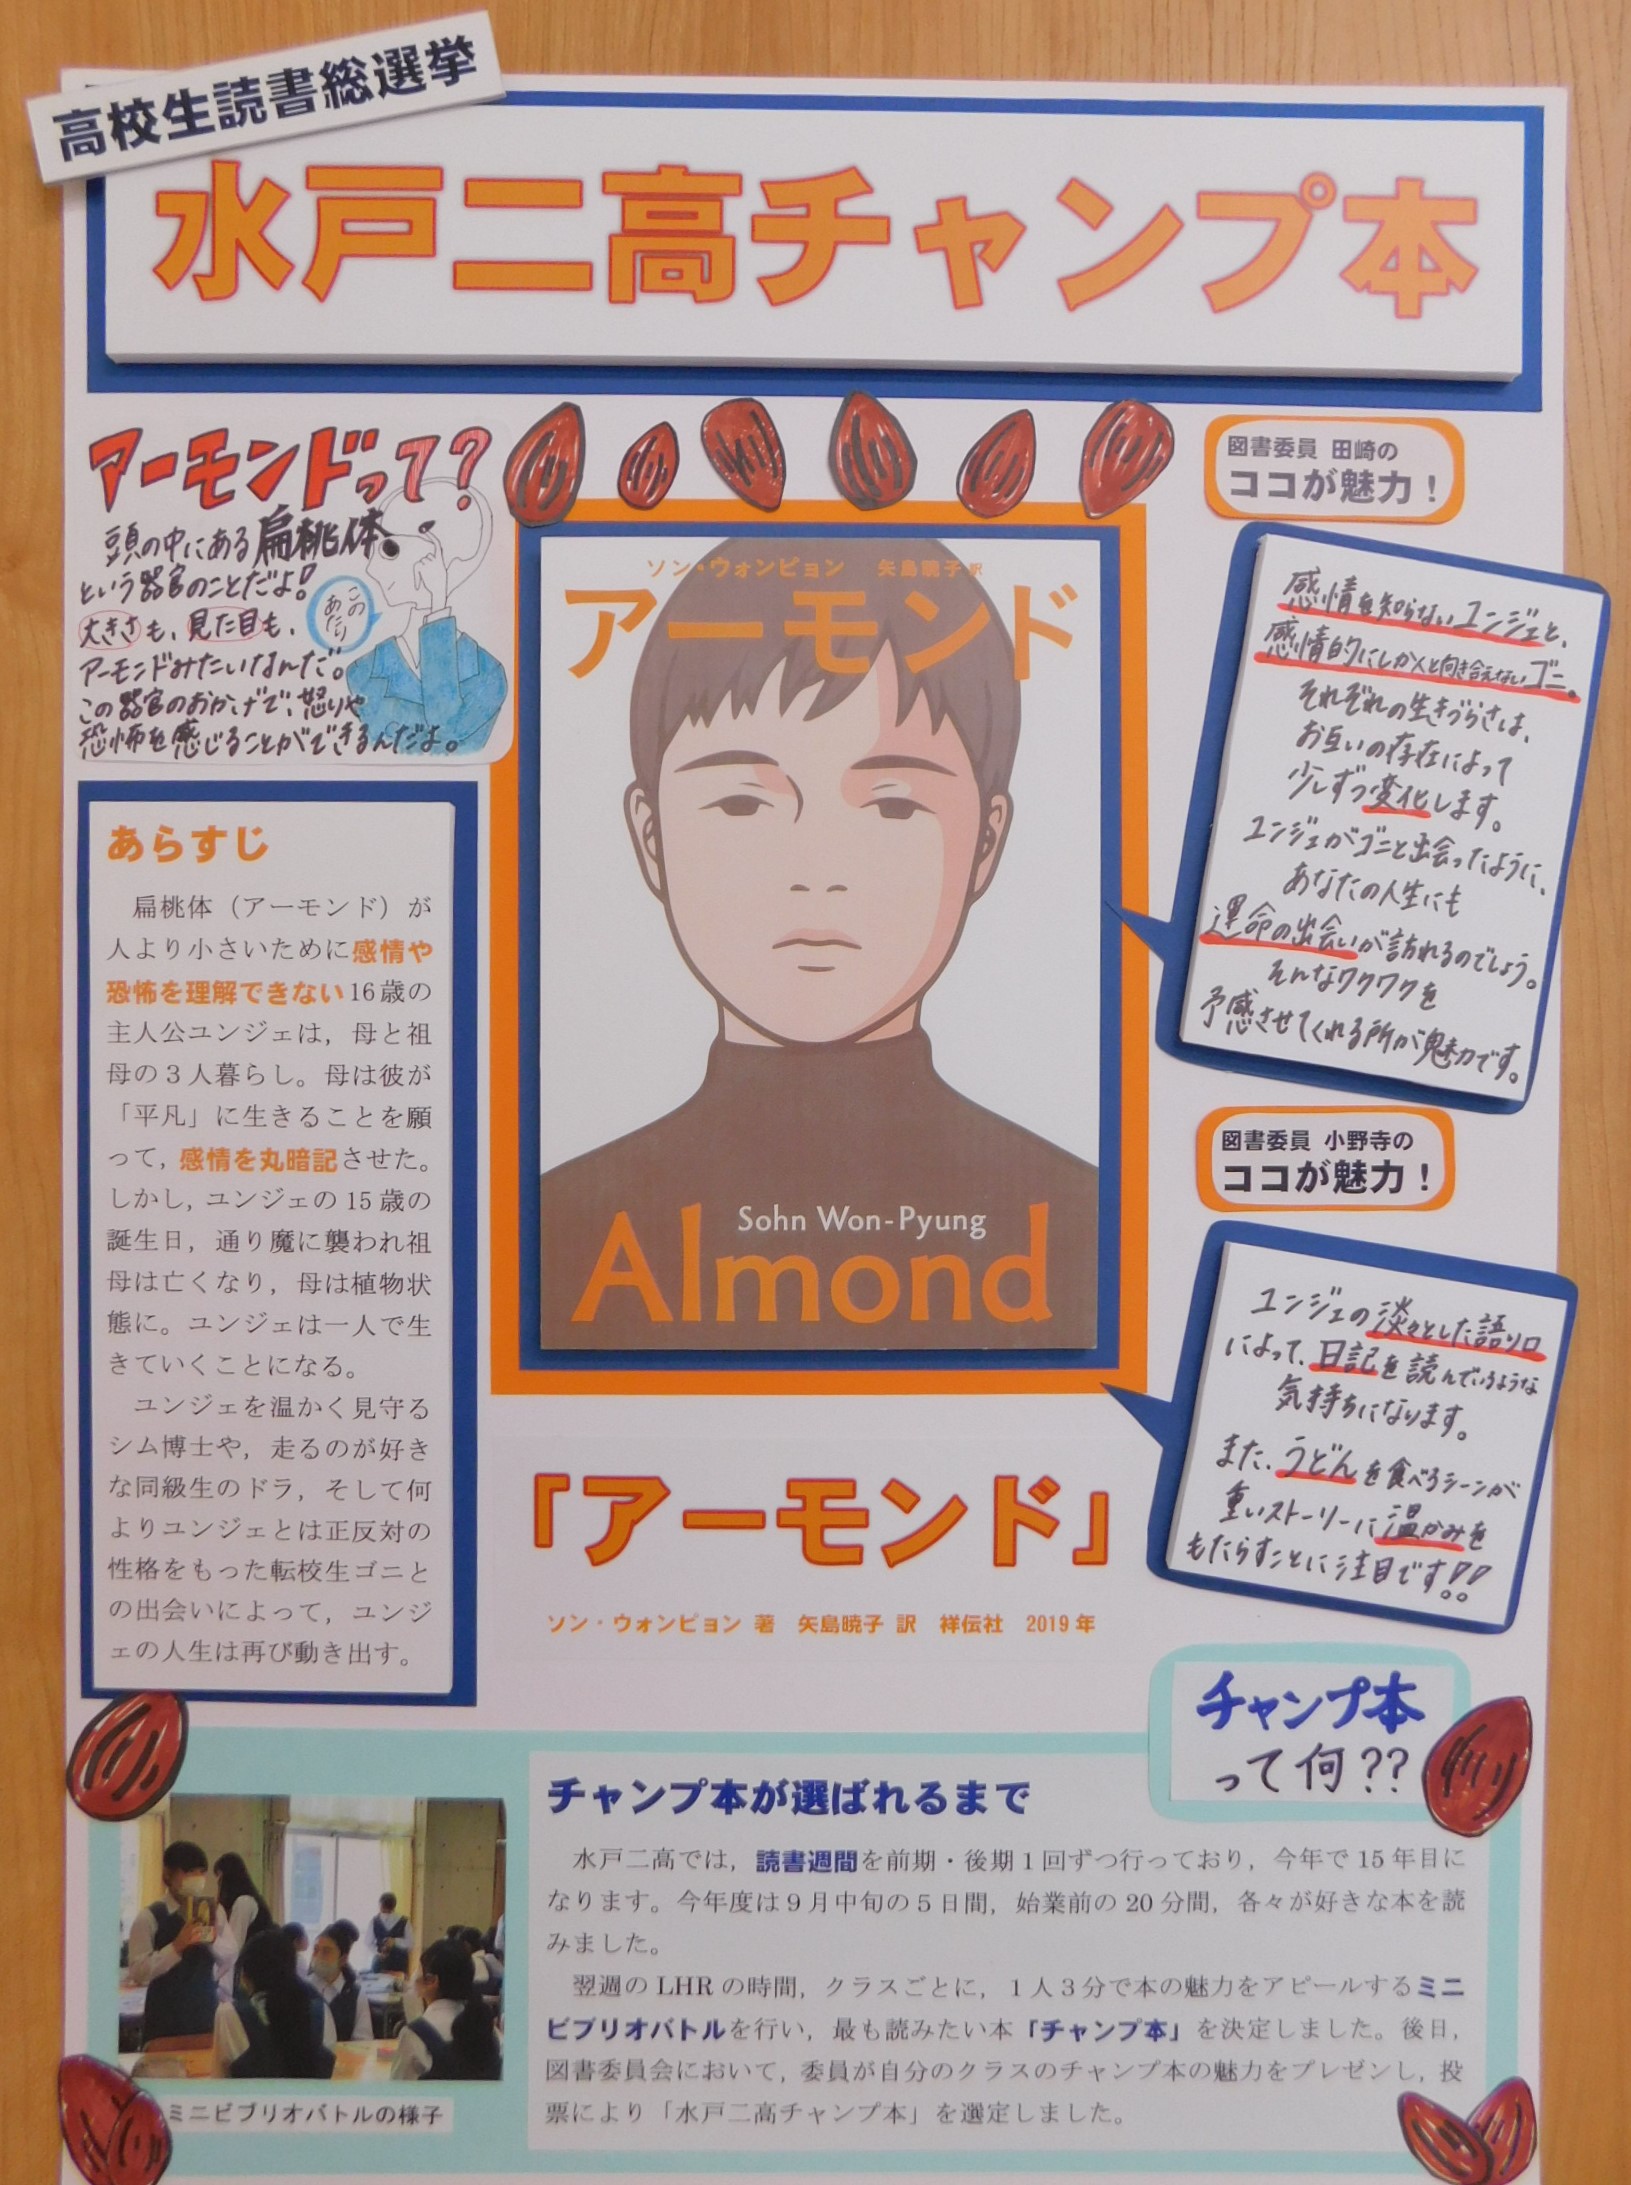 高校生読書総選挙
水戸二高チャンプ本
アーモンドって?
頭の中にある扁桃体
という器官のことだよ!
大きさも、見た目も、
アーモンドみたいなんだ。
この器官のおかげで、怒りや
恐怖を感じることができるんだよ。
この
あたり
あらすじ
扁桃体（アーモンド）が
人より小さいために感情や
恐怖を理解できない16歳の
主人公ユンジェは，母と祖
母の３人暮らし。母は彼が
「平凡」に生きることを願
って，感情を丸暗記させた。
しかし，ユンジェの15歳の
誕生日，通り魔に襲われ祖
母は亡くなり，母は植物状
態に。ユンジェは一人で生
きていくことになる。
ユンジェを温かく見守る
シム博士や，走るのが好き
な同級生のドラ，そして何
よりユンジェとは正反対の
性格をもった転校生ゴニと
の出会いによって，ユンジ
ェの人生は再び動き出す。
ソン・ウォンピョン 矢島暁子 訳
アーモンド
Sohn Won-Pyung
Almond
「アーモンド」
ソン・ウォンピョン 著 矢島暁子 訳 祥伝社 2019年
図書委員 田崎の
ココが魅力！
感情を知らないユンジェと、
感情的にしか人と向き合えないゴニ。
それぞれの生きづらさは、
お互いの存在によって
少しずつ変化します。
ユンジェがゴニと出会ったように、
あなたの人生にも
運命の出会いが訪れるのでしょう。
そんなワクワクを
予感させてくれる所が魅力です。
図書委員 小野寺の
ココが魅力！
ユンジェの淡々とした語り口
によって、日記を読んでいるような
気持ちになります。
また、うどんを食べるシーンが
重いストーリーに温かみを
もたらすことに注目です!!
チャンプ本
って何??
チャンプ本が選ばれるまで
水戸二高では，読書週間を前期・後期１回ずつ行っており，今年で15年目に
なります。今年度は９月中旬の５日間，始業前の20分間，各々が好きな本を読
みました。
翌週のLHRの時間，クラスごとに，１人３分で本の魅力をアピールするミニ
ビブリオバトルを行い，最も読みたい本「チャンプ本」を決定しました。後日，
図書委員会において，委員が自分のクラスのチャンプ本の魅力をプレゼンし，投
票により「水戸二高チャンプ本」を選定しました。
ミニビブリオバトルの様子